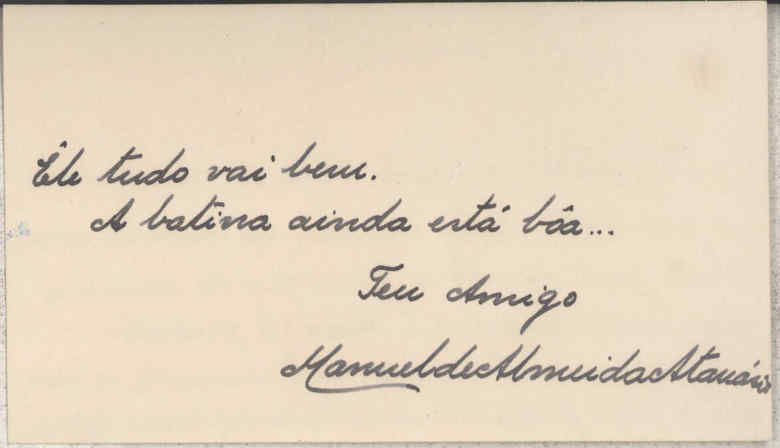 Êle tudo vai bem.
A batina ainda está bôa...
Teu Amigo
Manuel de Almeida